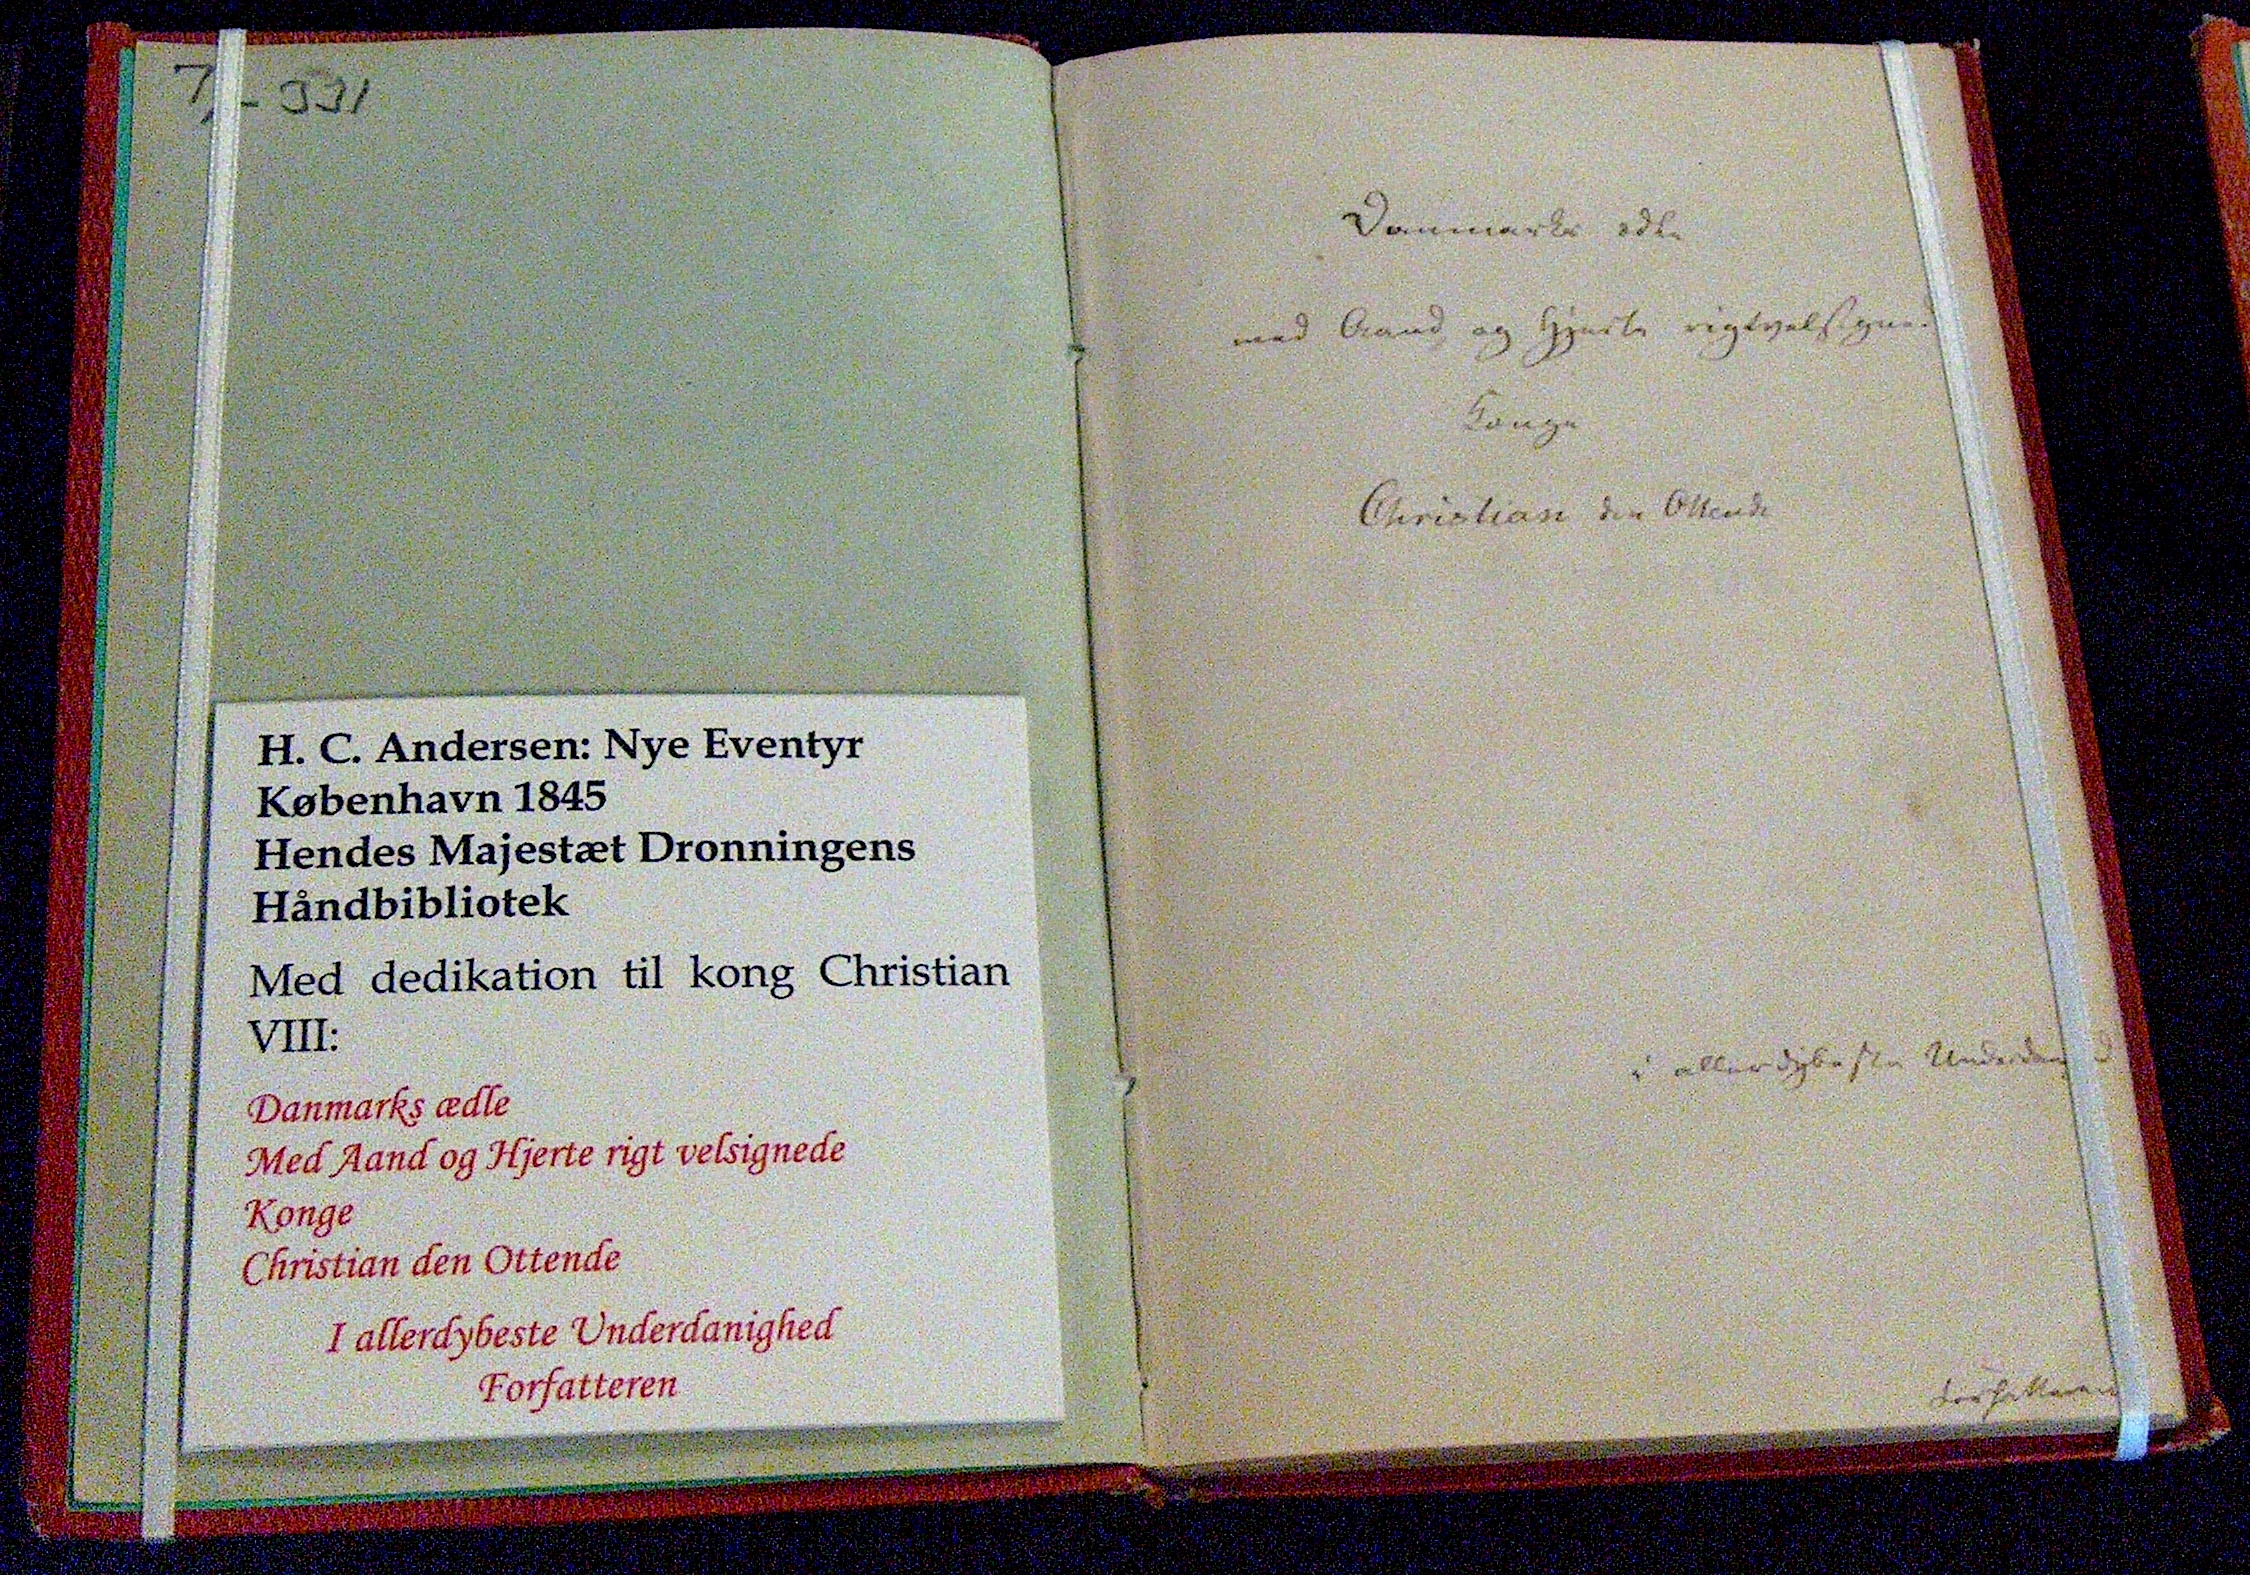 7/- 331
H. C. Andersen: Nye Eventyr
København 1845
Hendes Majestæt Dronningens
Håndbibliotek
Med dedikation til kong Christian
VIII:
Danmarks ædle
Med Aand og Hjerte rigt velsignede
Konge
Christian den Ottende
I allerdybeste Underdanighed
Forfatteren
Danmarks ædle
med Aand og Hjerte rigtvelsigned
Konge
Christian den Ottende
i allerdybeste Underdan d
Forfatteren